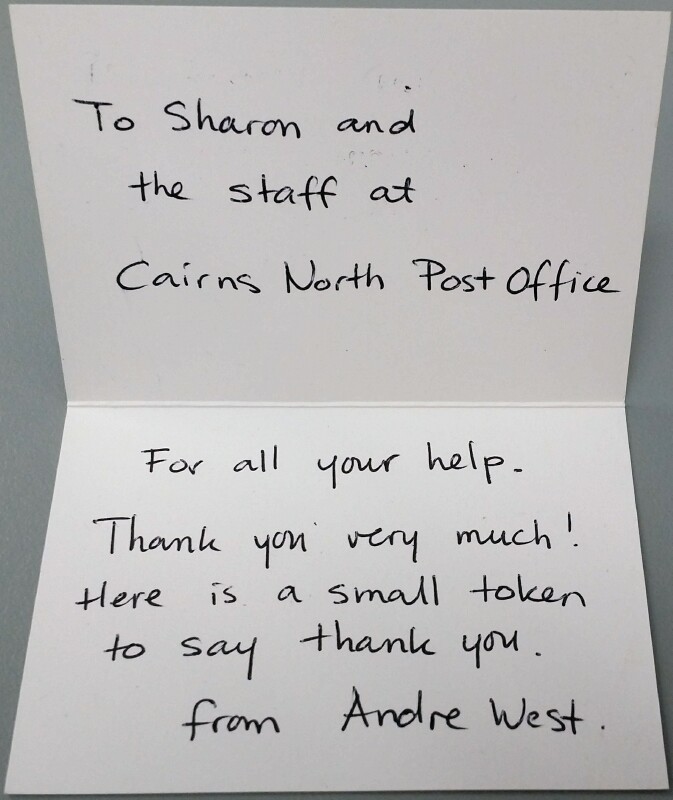 To Sharon and
the staff at
Cairns North Post Office
For all your help.
Thank you very much!
Here is a small token
to say thank you.
from Andre West.